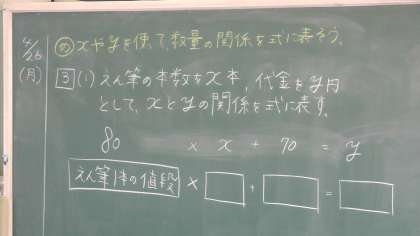 4/26
(月)
め xやyを使って、数量の関係を式に表そう。
3 (1) えん筆の本数をx本、代金をy円
として、xとyの関係を式に表す。
80 × x + 70 = y
えん筆1本の値段 × □ + □ = □